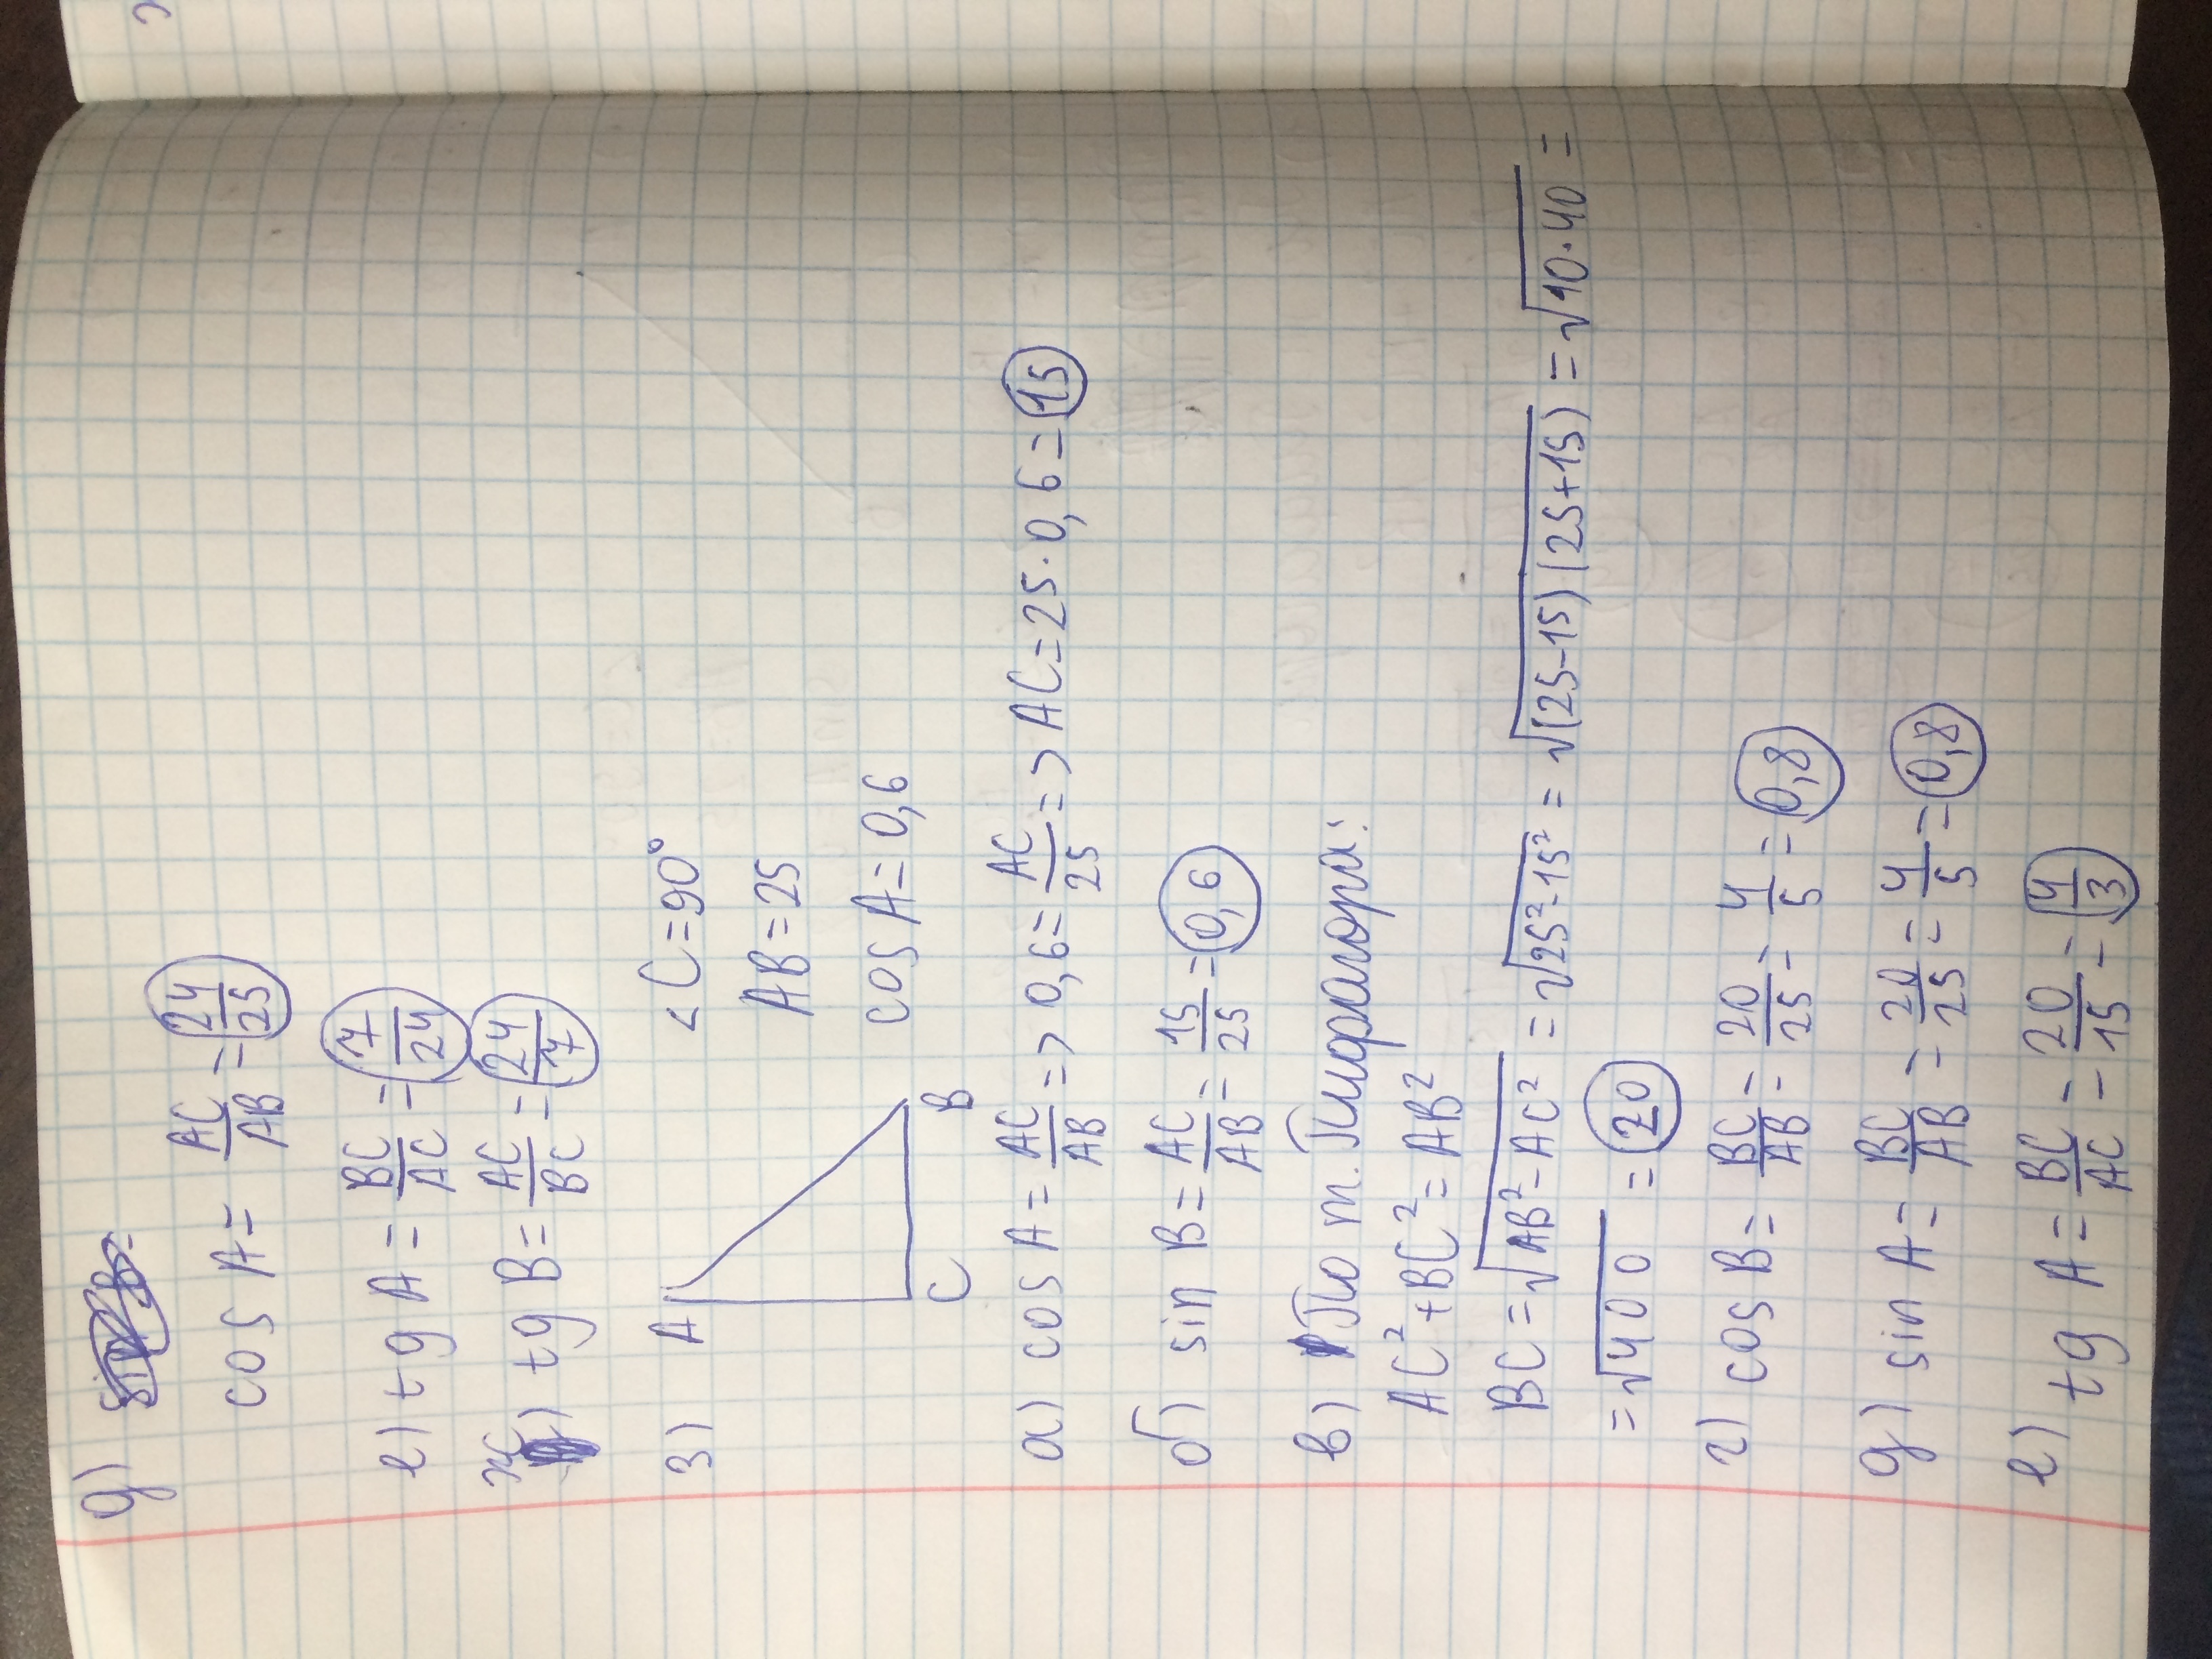 д)
cos A = AC/AB = 24/25
е) tg A = BC/AC = 7/24
ж) tg B = AC/BC = 24/7
3) A C B
< C = 90°
AB = 25
cos A = 0,6
а) cos A = AC/AB => 0,6 = AC/25 => AC = 25 · 0,6 = 15
б) sin B = AC/AB = 15/25 = 0,6
в) По т. Пифагора:
AC² + BC² = AB²
BC = √AB² - AC² = √25² - 15² = √(25-15)(25+15) = √10·40 =
= √400 = 20
г) cos B = BC/AB = 20/25 = 4/5 = 0,8
д) sin A = BC/AB = 20/25 = 4/5 = 0,8
е) tg A = BC/AC = 20/15 = 4/3